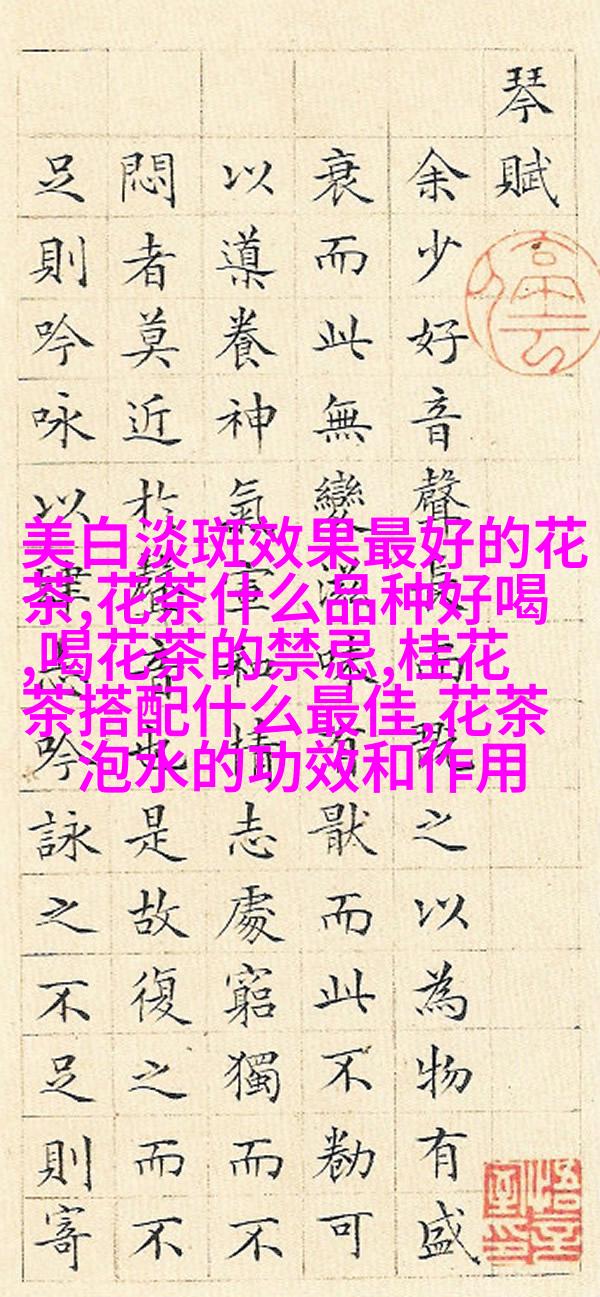 琴賦
余少好音聲長而翫之以為物有盛
衰而此無變滋味有猒而此不勌可
以導養神氣宣和情志處窮獨而不
悶者莫近扵聲音也是故復之而不
足則吟咏以肆志吟詠之不足則寄
美白淡斑效果最好的花
茶,花茶什么品种好喝
,喝花茶的禁忌,桂花
茶搭配什么最佳,花茶
泡水的功效和作用